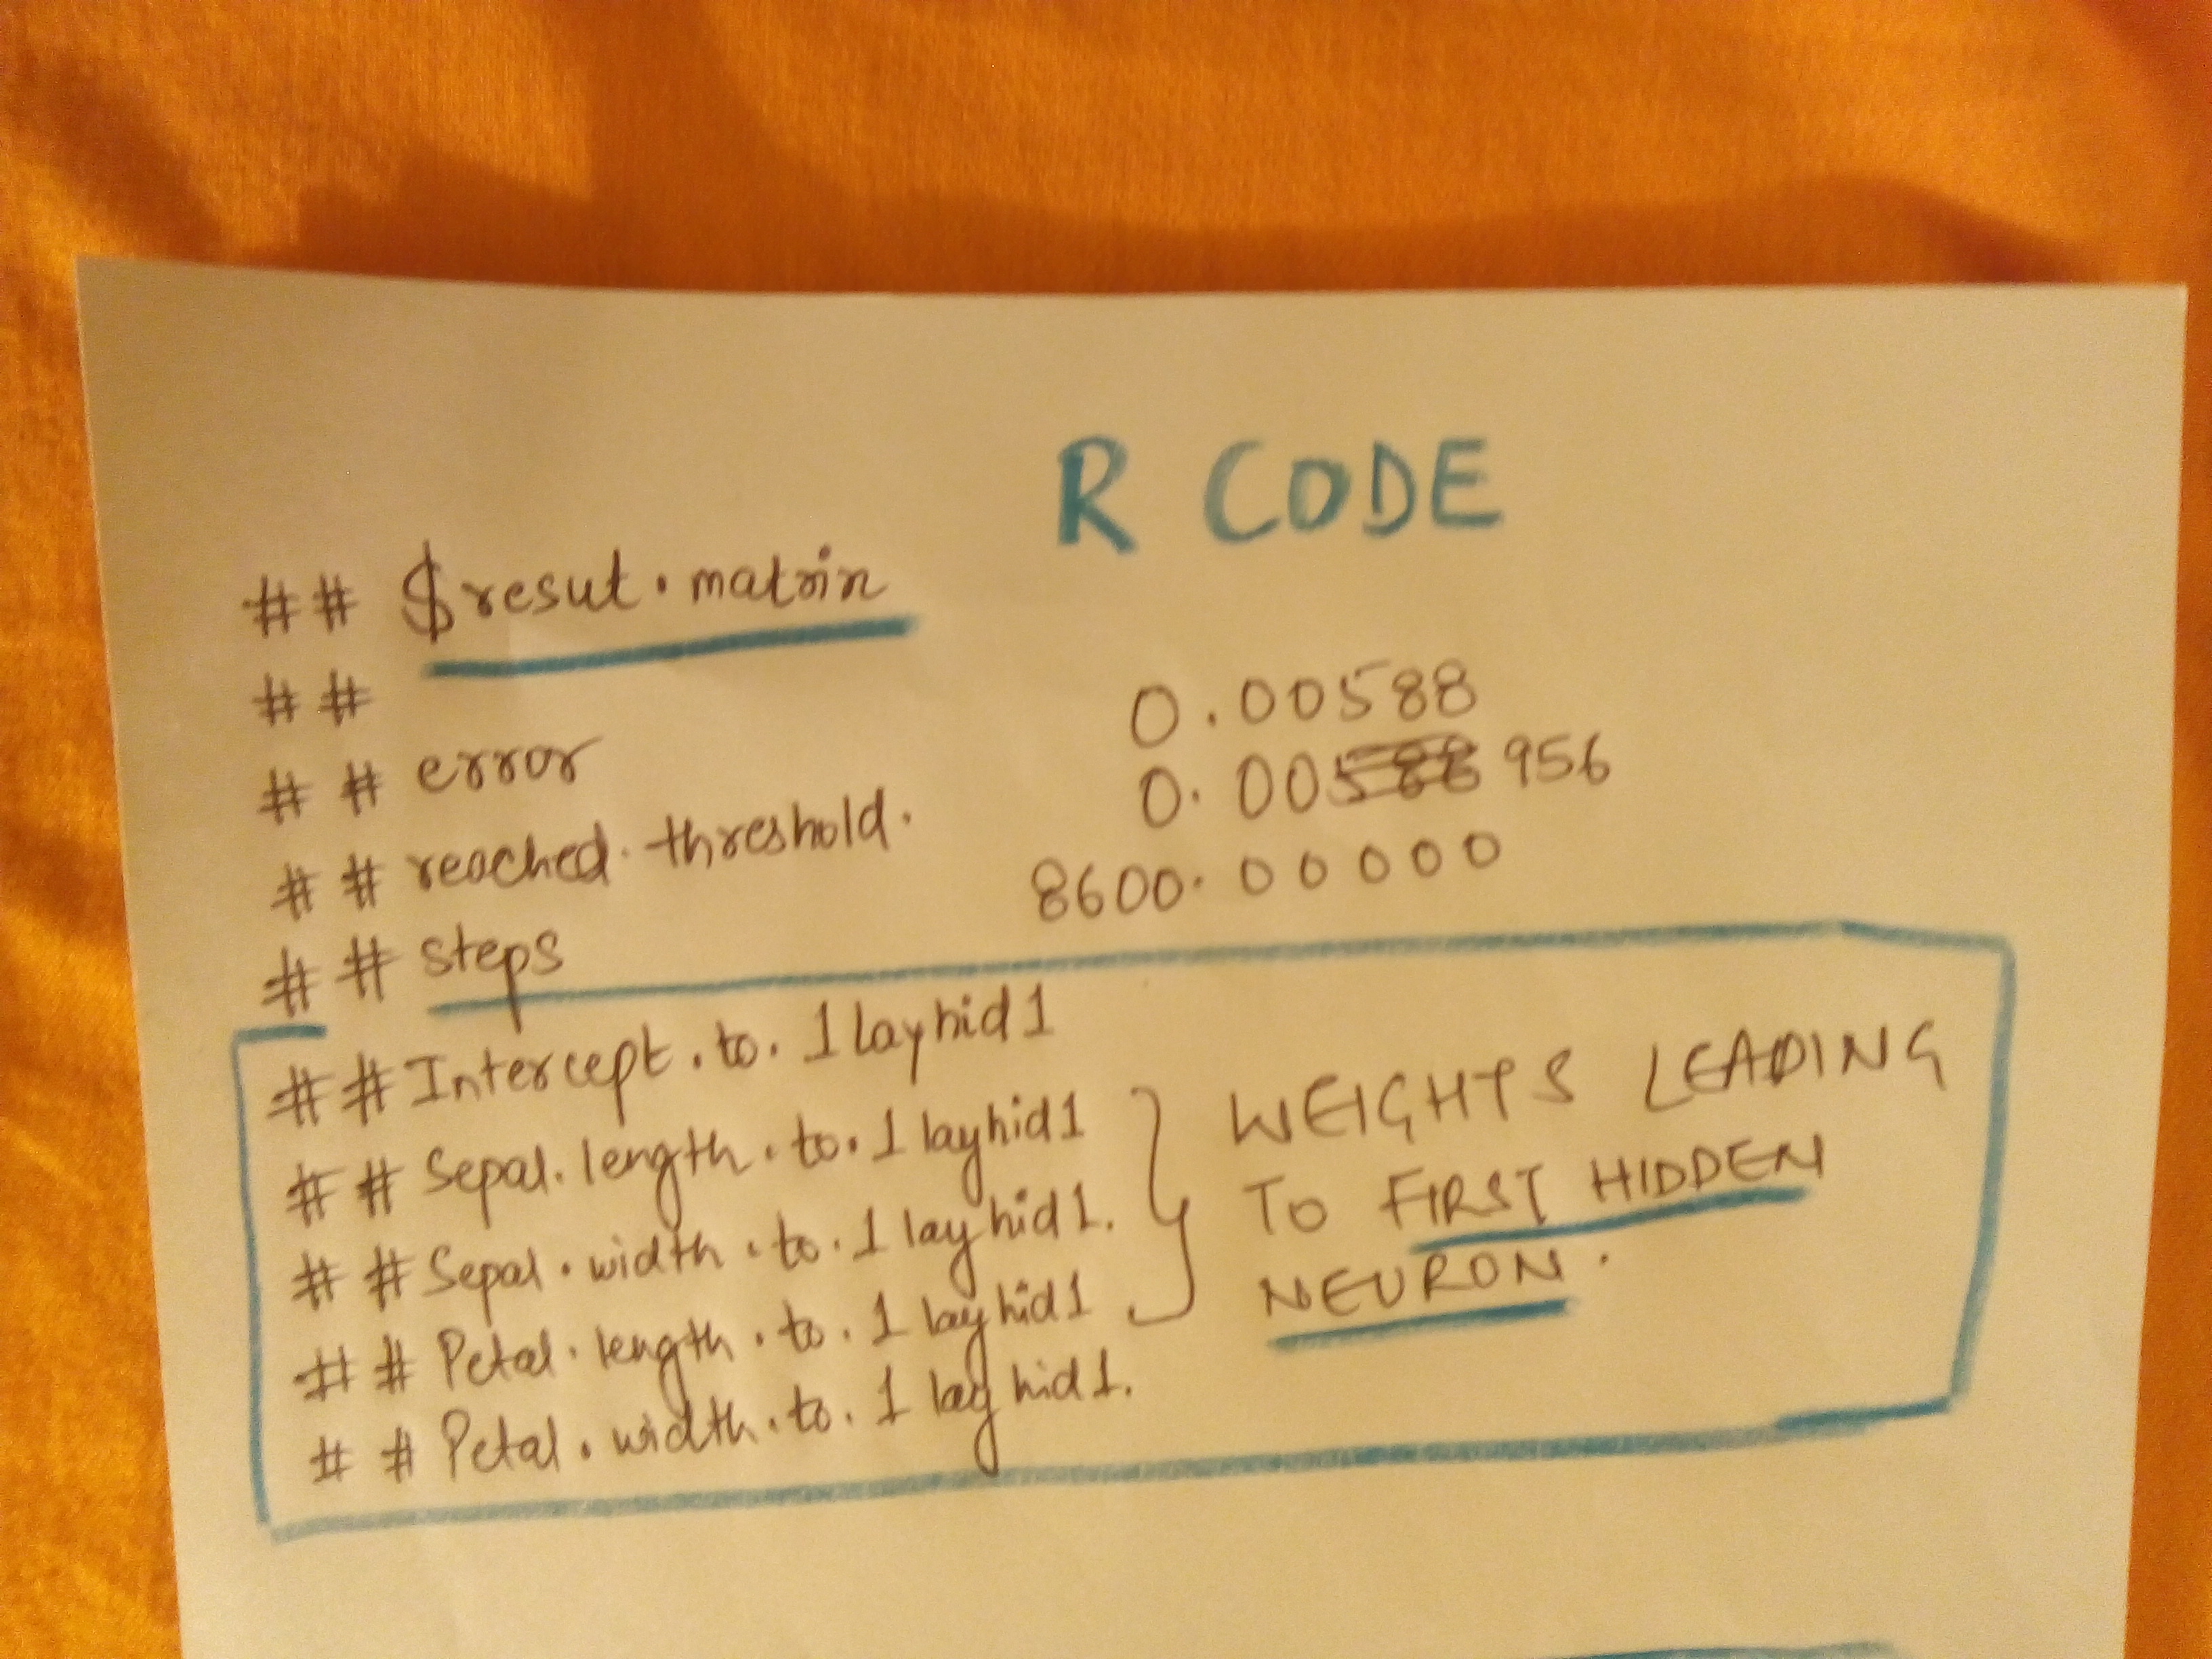 R CODE
## $resut.matrix
##
0.00588
## error
0.00588 956
## reached.threshold.
8600.00000
## steps
## Intercept.to.1layhid1
## Sepal.length.to.1layhid1
## Sepal.width.to.1layhid1.
## Petal.length.to.1layhid1
## Petal.width.to.1layhid1.
WEIGHTS LEADING
TO FIRST HIDDEN
NEURON.